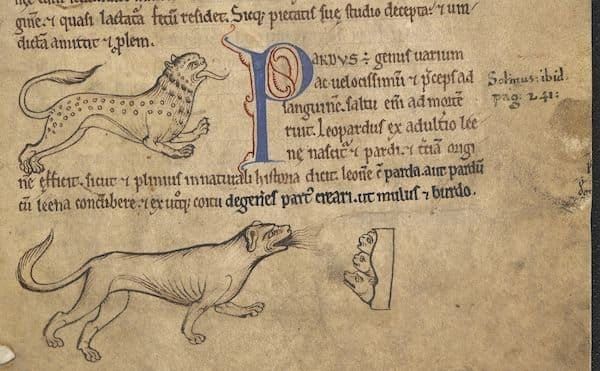 gine. ⁊ quasi lactatã fetũ residet. Sicq; pietatis sue studio decepta. ⁊ uin
dictã amittit ⁊ ꝓlem.
PARDVS ē genus uarium
ac uelocissimũ ⁊ p̃ceps ad
sanguinẽ. saltu eni ad mortẽ
ruit. Leopardus ex adultio lee
nę nascit᷑ ⁊ pardi. ⁊ t̃ciã origi
nẽ efficit. sicut ⁊ plinius in naturali historia dicit. leonẽ c̃ parda. aut pardũ
cũ leena concũbere. ⁊ ex utq; coitu degeñes part᷒ creari. ut mulus ⁊ burdo.
Solinus: ibid.
pag: 241: